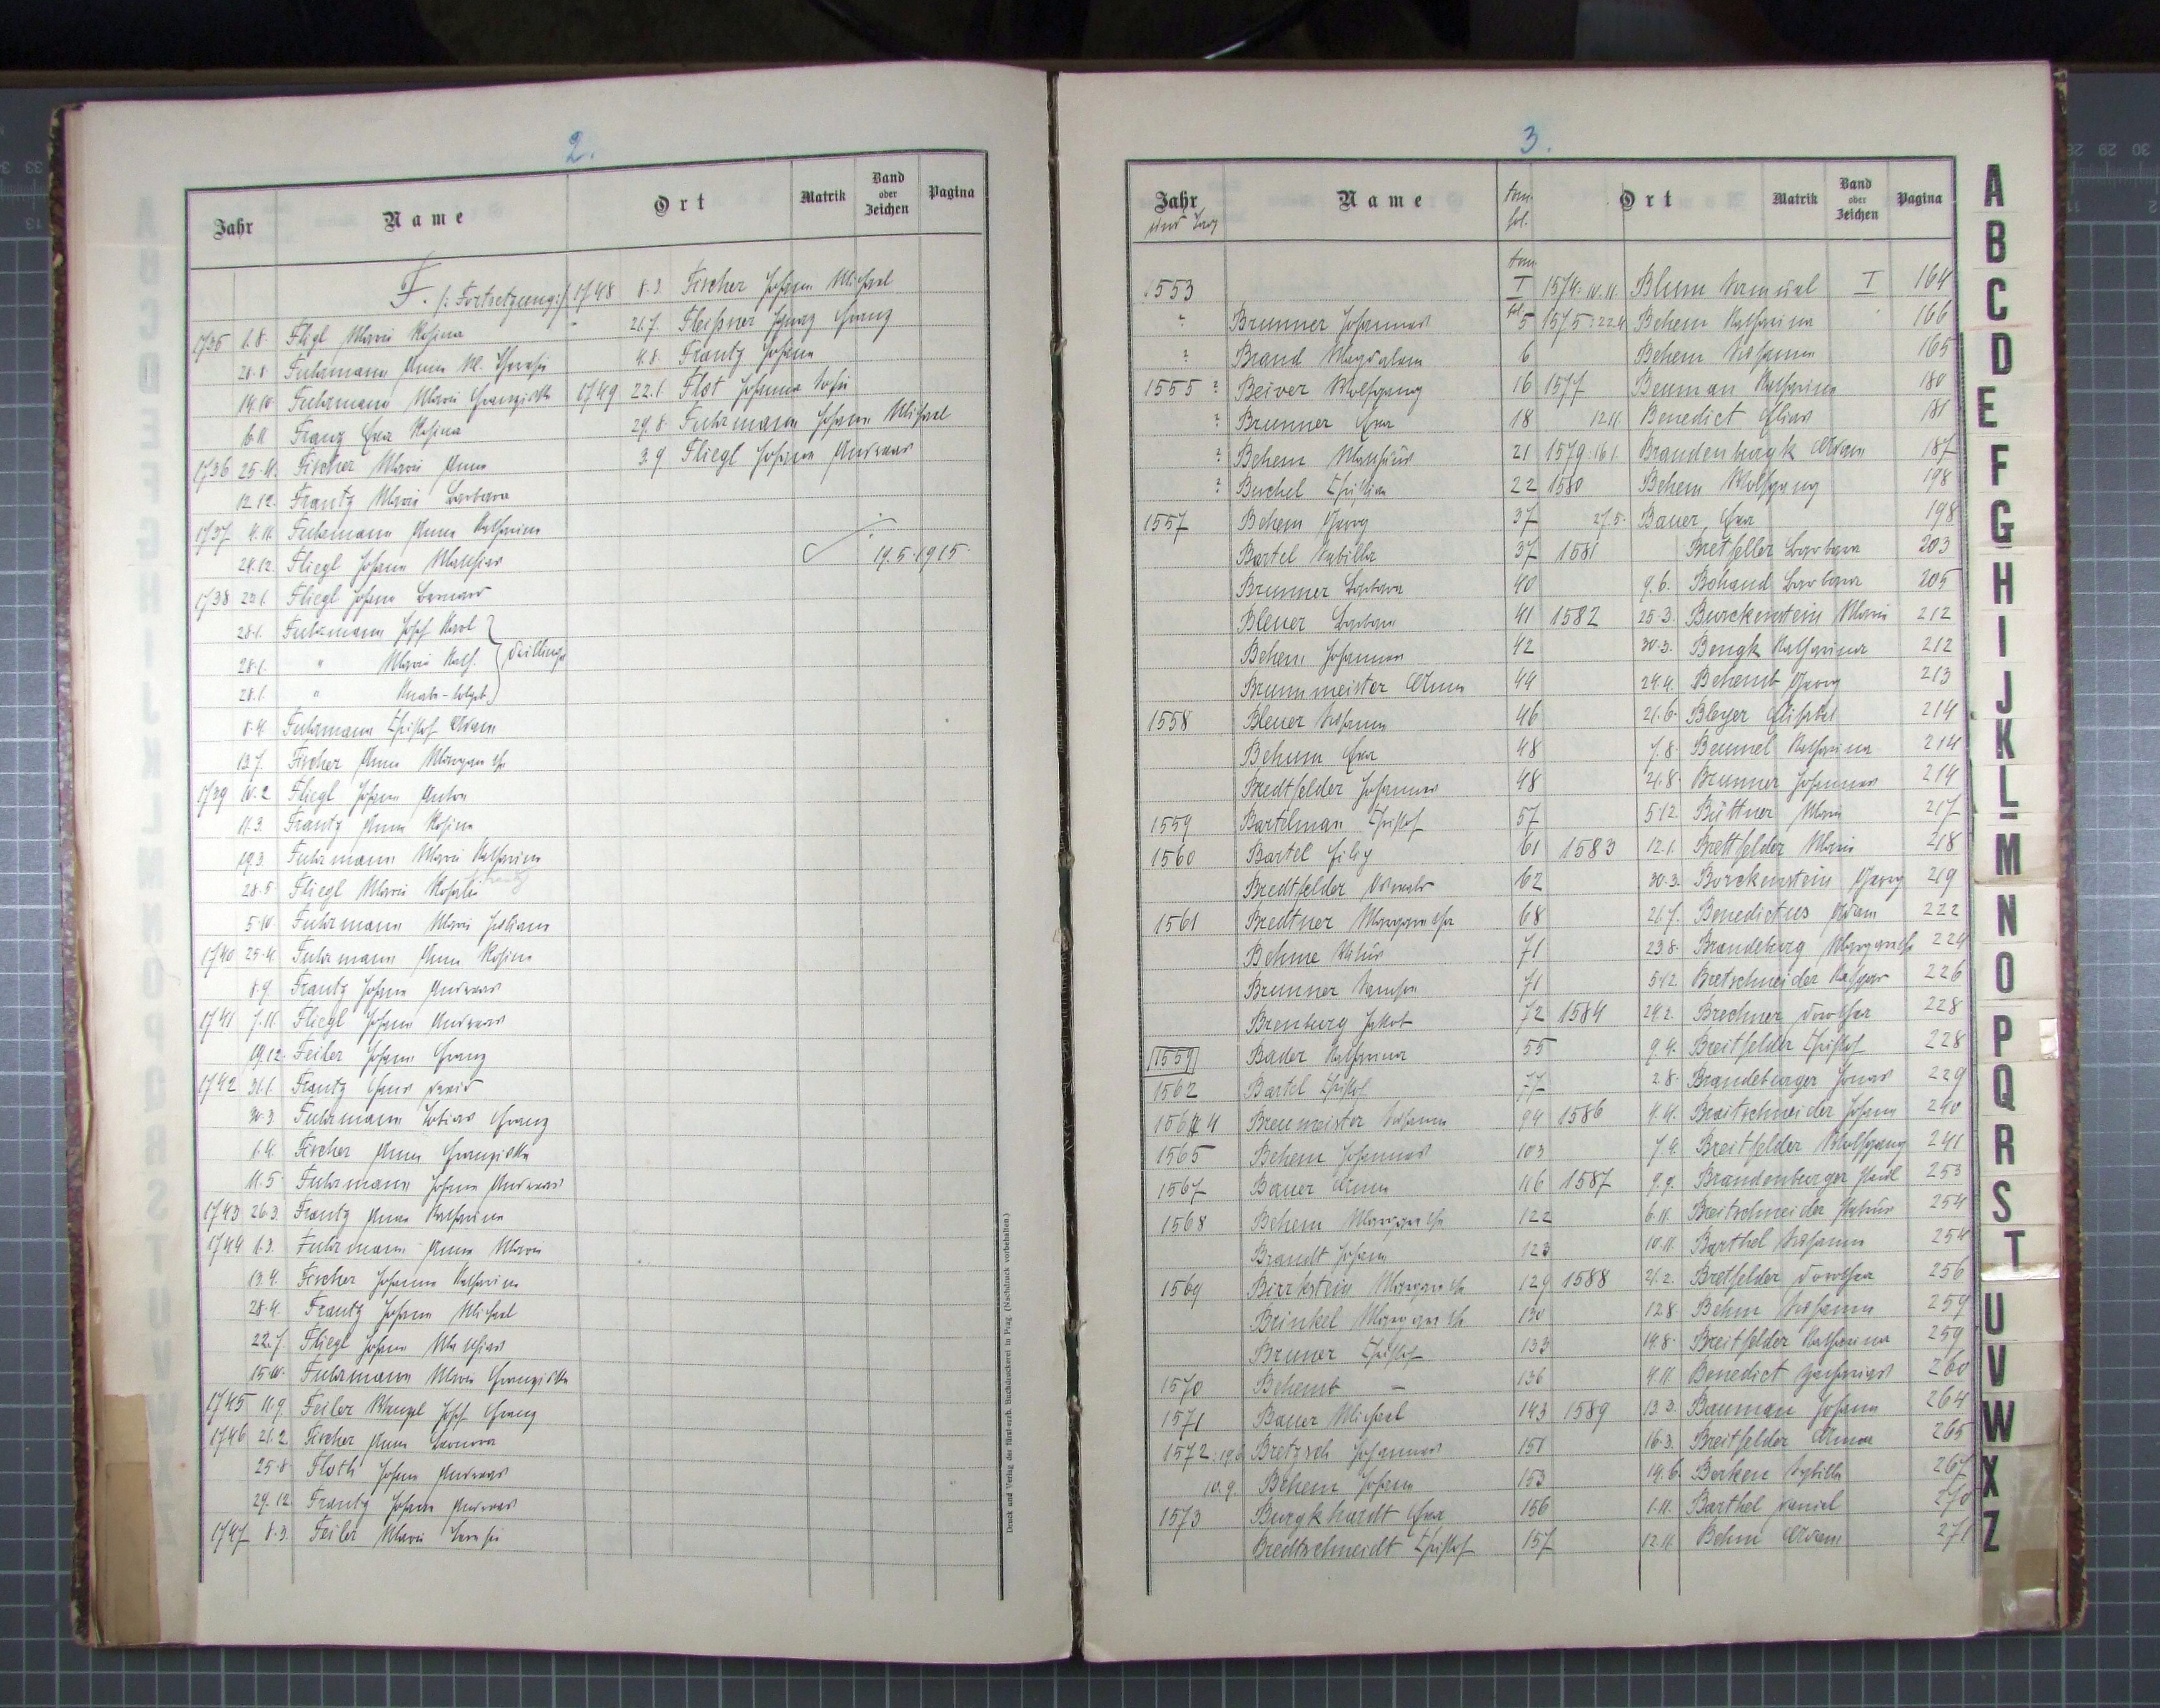 2.
Jahr Name Ort Matrik Band oder Zeichen Pagina
F. /: Fortsetzung :/
1735 1.8. Fligl Marie Rosina
28.8. Fuhrmann Anna M. Theresia
14.10. Fuhrmann Marie Franziska
16.11. Franz Eva Rosina
1736 25.4. Fischer Marie Anna
12.12. Frantz Marie Barbara
1737 4.11. Fuhrmann Anna Katharina
24.12. Fliegl Johann Mathias
1738 23.1. Fliegl Johann Bernard
28.1. Fuhrmann Josef Karl
28.1. " Marie Kath. Drillinge
28.1. " Knabe-totgeb.
8.4. Fuhrmann Christof Adam
13.7. Fischer Anna Margaretha
1739 10.2. Fliegl Johann Anton
11.3. Frantz Anna Rosina
19.3. Fuhrmann Marie Katharina
28.5. Fliegl Marie Rosalie
5.10. Fuhrmann Marie Juliana
1740 25.4. Fuhrmann Anna Rosina
8.9. Frantz Johann Andreas
1741 7.11. Fliegl Johann Andreas
19.12. Feiler Johann Franz
1742 31.1. Frantz David
30.3. Fuhrmann Tobias Franz
1.4. Fischer Anna Franziska
11.5. Fuhrmann Johann Andreas
1743 26.3. Frantz Anna Katharina
1744 1.3. Fuhrmann Anna Marie
13.4. Fischer Johanna Katharina
28.4. Frantz Johann Michael
22.7. Fliegl Johann Mathias
15.10. Fuhrmann Marie Franziska
1745 11.9. Feiler Wenzel Josef Franz
1746 21.2. Fischer Anna Leonora
25.8. Floth Johann Andreas
29.12. Frantz Johann Andreas
1747 8.3. Feiler Marie Theresia
1748 8.3. Fischer Johann Michael
" 21.7. Fleißner Ignaz Franz
4.8. Frantz Johann
1749 22.1. Flot Johanna Sofie
29.8. Fuhrmann Johann Michael
3.9. Fliegl Johann Andreas
19.5.1915.
Druck und Verlag der fürst-erzb. Buchdruckerei in Prag. (Nachdruck vorbehalten.)
3.
Jahr und Tag Name tom. fol. Ort Matrik Band oder Zeichen Pagina
1553 tom. I
? Brunner Johannes fol. 5
? Brand Magdalena 6
1555 ? Beiver Wolfgang 16
? Brunner Eva 18
? Behem Mathäus 21
? Buchel Christian 22
1557 Behem Georg 37
Bartel Sabilla 37
Brunner Barbara 40
Bleuer Barbara 41
Behem Johannes 42
Brunnmeister Anna 44
1558 Bleuer Susanna 46
Behem Eva 48
Bredtfelder Johannes 48
1559 Bartelman Christof 57
1560 Bartel Filip 61
Bredtfelder Oswald 62
1561 Bredtner Margaretha 68
Behme 71
Brunner Samson 71
Brenburg Jakob 72
1559 Bader Katharina 55
1562 Bartel Christof 77
1564 Breumeister Susanna 94
1565 Behem Johannes 103
1567 Bauer Anna 116
1568 Behem Margaretha 122
Brandt Johann 123
1569 Birrkstein Margaretha 129
Brinkel Margaretha 130
Bruner Christof 133
1570 Behemb – 136
1571 Bauer Michael 143
1572 19.6. Bretzsch Johannes 151
10.9. Behem Johann 153
1573 Burgkhardt Eva 156
Bredtschneidt Christof 157
1574 10.11. Blum Samuel I 164
1575 22.4. Behem Katharina 166
Behem Susanna 165
1577 Beuman Katharina 180
12.11. Benedict Elias 181
1579 16.1. Brandenburgk Adam 187
1580 Behem Wolfgang 198
27.5. Bauer Eva 198
1581 Bretfeller Barbara 203
9.6. Bohand Barbara 205
1582 25.3. Burckenstein Maria 212
30.3. Bengk Katharina 212
24.4. Behemb Georg 213
21.6. Bleyer Elisabet 214
7.8. Beumel Katharina 214
21.8. Brunner Johannes 214
5.12. Büttner Maria 217
1583 12.1. Brettfelder Maria 218
30.3. Borckenstein Georg 219
21.7. Benedictus Adam 222
23.8. Brandeburg Margaretha 224
5.12. Bretschneider Kaspar 226
1584 24.2. Brechner Dorothea 228
9.4. Breitfelder Christof 228
2.8. Brandeburger Jonas 229
1586 4.4. Braitschneider Johann 240
7.4. Breitfelder Wolfgang 241
1587 9.9. Brandenburger Paul 253
6.11. Breitschneider 254
10.11. Barthel Susanna 254
1588 21.2. Bretfelder Dorothea 256
12.8. Behm Susanna 259
14.8. Breitfelder Katharina 259
4.11. Benedict Zacharias 260
1589 13.3. Bauman Johann 264
16.3. Breitfelder Anna 265
14.6. Berken Sybilla 267
1.11. Barthel Daniel 270
12.11. Behm Adam 271
A
B
C
D
E
F
G
H
I
J
K
L
M
N
O
P
Q
R
S
T
U
V
W
X
Z